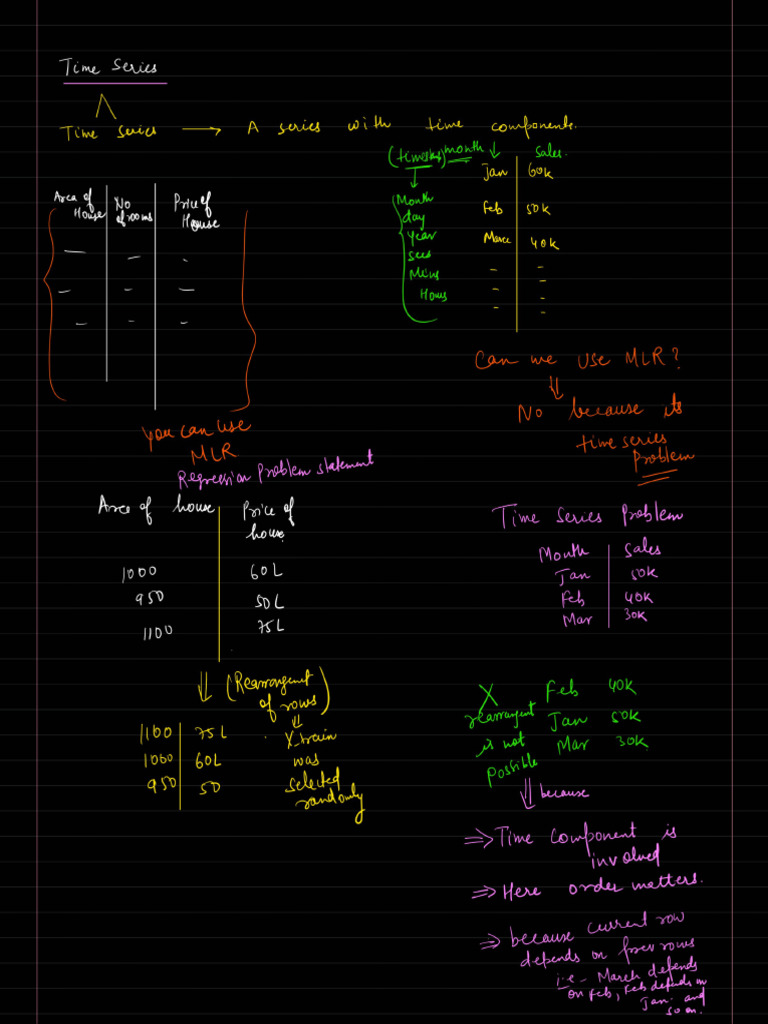 Time Series
Time Series → A series with time components.
(timesks) month ↓ Sales.
Jan 60K
Feb 50K
Marce 40K
Month
day
Year
secs
Mins
Hours
Area of House No of rooms Price of House
You can use
MLR
Can we use MLR?
No because its
time series
Problem
Regression Problem statement
Area of house Price of
house
1000 60L
950 50L
1100 75L
Time Series Problem
Month Sales
Jan 50K
Feb 40K
Mar 30K
(Rearrangement
of rows)
1100 75L X_train
1000 60L was
950 50 selected
randomly
X Feb 40K
rearrangent Jan 50K
is not Mar 30K
Possible
because
⇒ Time component is
involved
⇒ Here order matters.
⇒ because current row
depends on prev rows
i.e - March depends
on Feb, Feb depends on
Jan. and
so on.